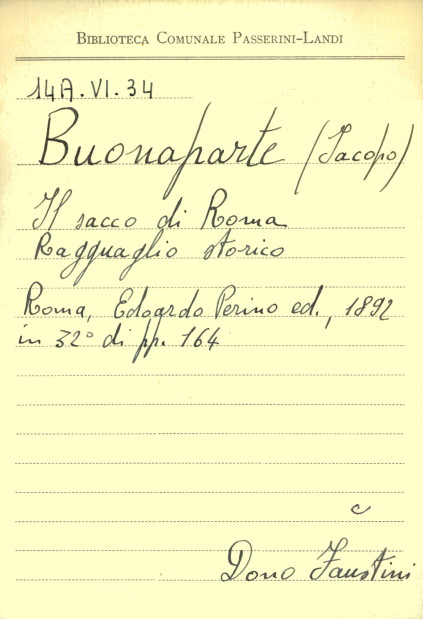 BIBLIOTECA COMUNALE PASSERINI-LANDI
14A.VI.34
Buonaparte (Jacopo)
Il sacco di Roma
Ragguaglio storico
Roma, Edoardo Perino ed., 1892
in 32° di pp. 164
c
Dono Faustini